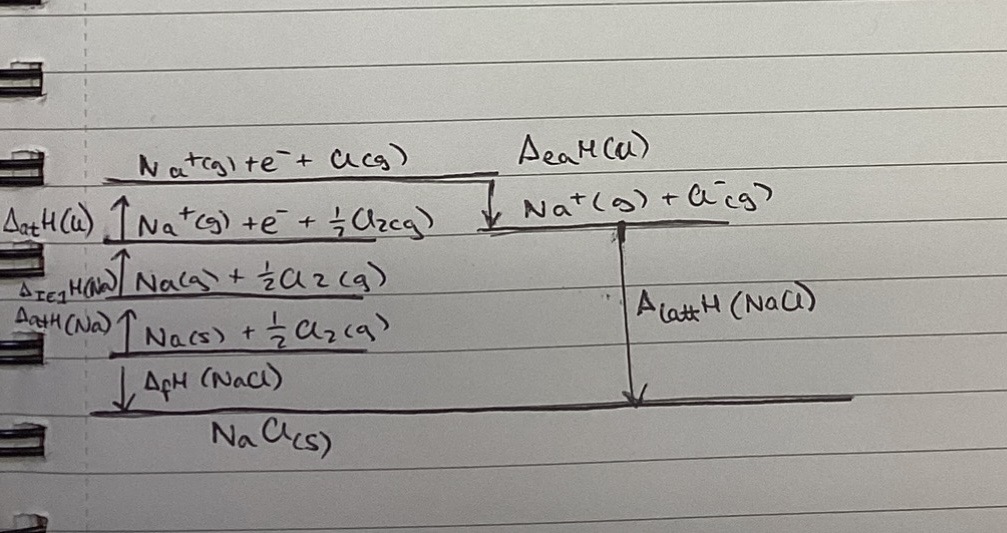 Na⁺(g) + e⁻ + Cl(g)
ΔeaH(Cl)
ΔatH(Cl)
Na⁺(g) + e⁻ + ½Cl₂(g)
Na⁺(g) + Cl⁻(g)
ΔIE1H(Na)
Na(g) + ½Cl₂(g)
ΔlattH(NaCl)
ΔatH(Na)
Na(s) + ½Cl₂(g)
ΔfH(NaCl)
NaCl(s)